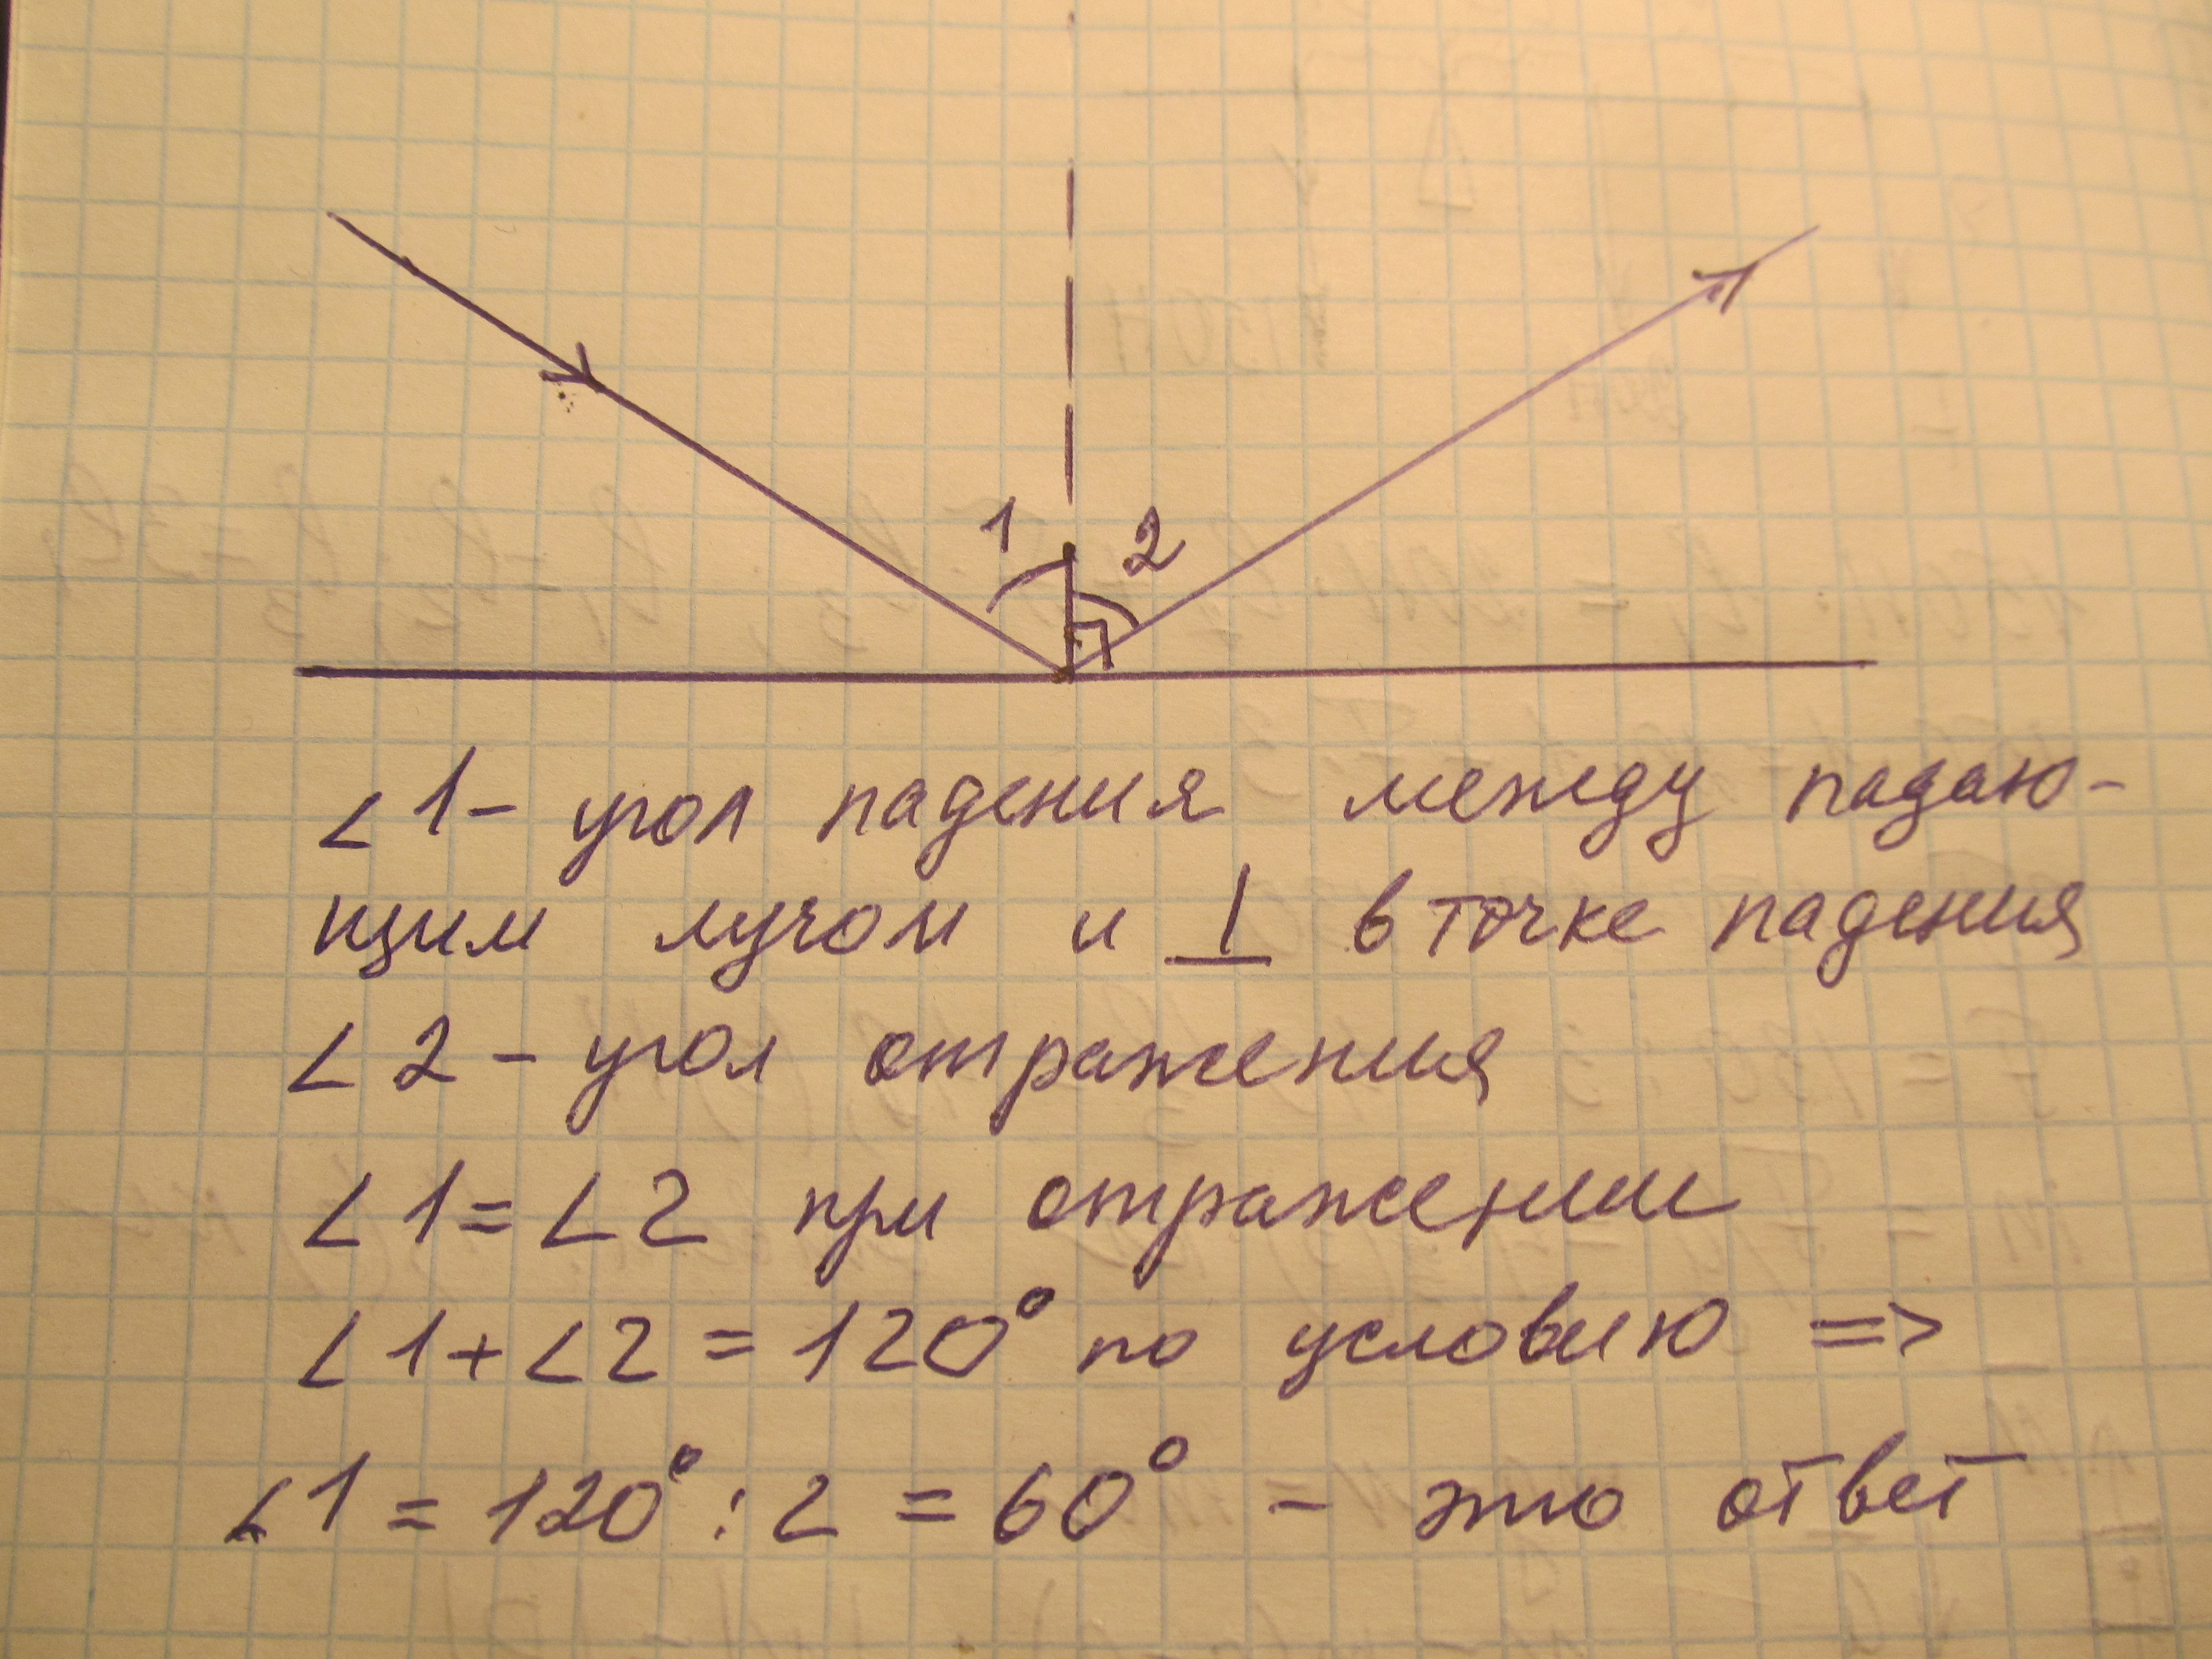 1 2
∠1 - угол падения между падаю-
щим лучом и ⊥ в точке падения
∠2 - угол отражения
∠1 = ∠2 при отражении
∠1 + ∠2 = 120° по условию =>
∠1 = 120° : 2 = 60° - это ответ